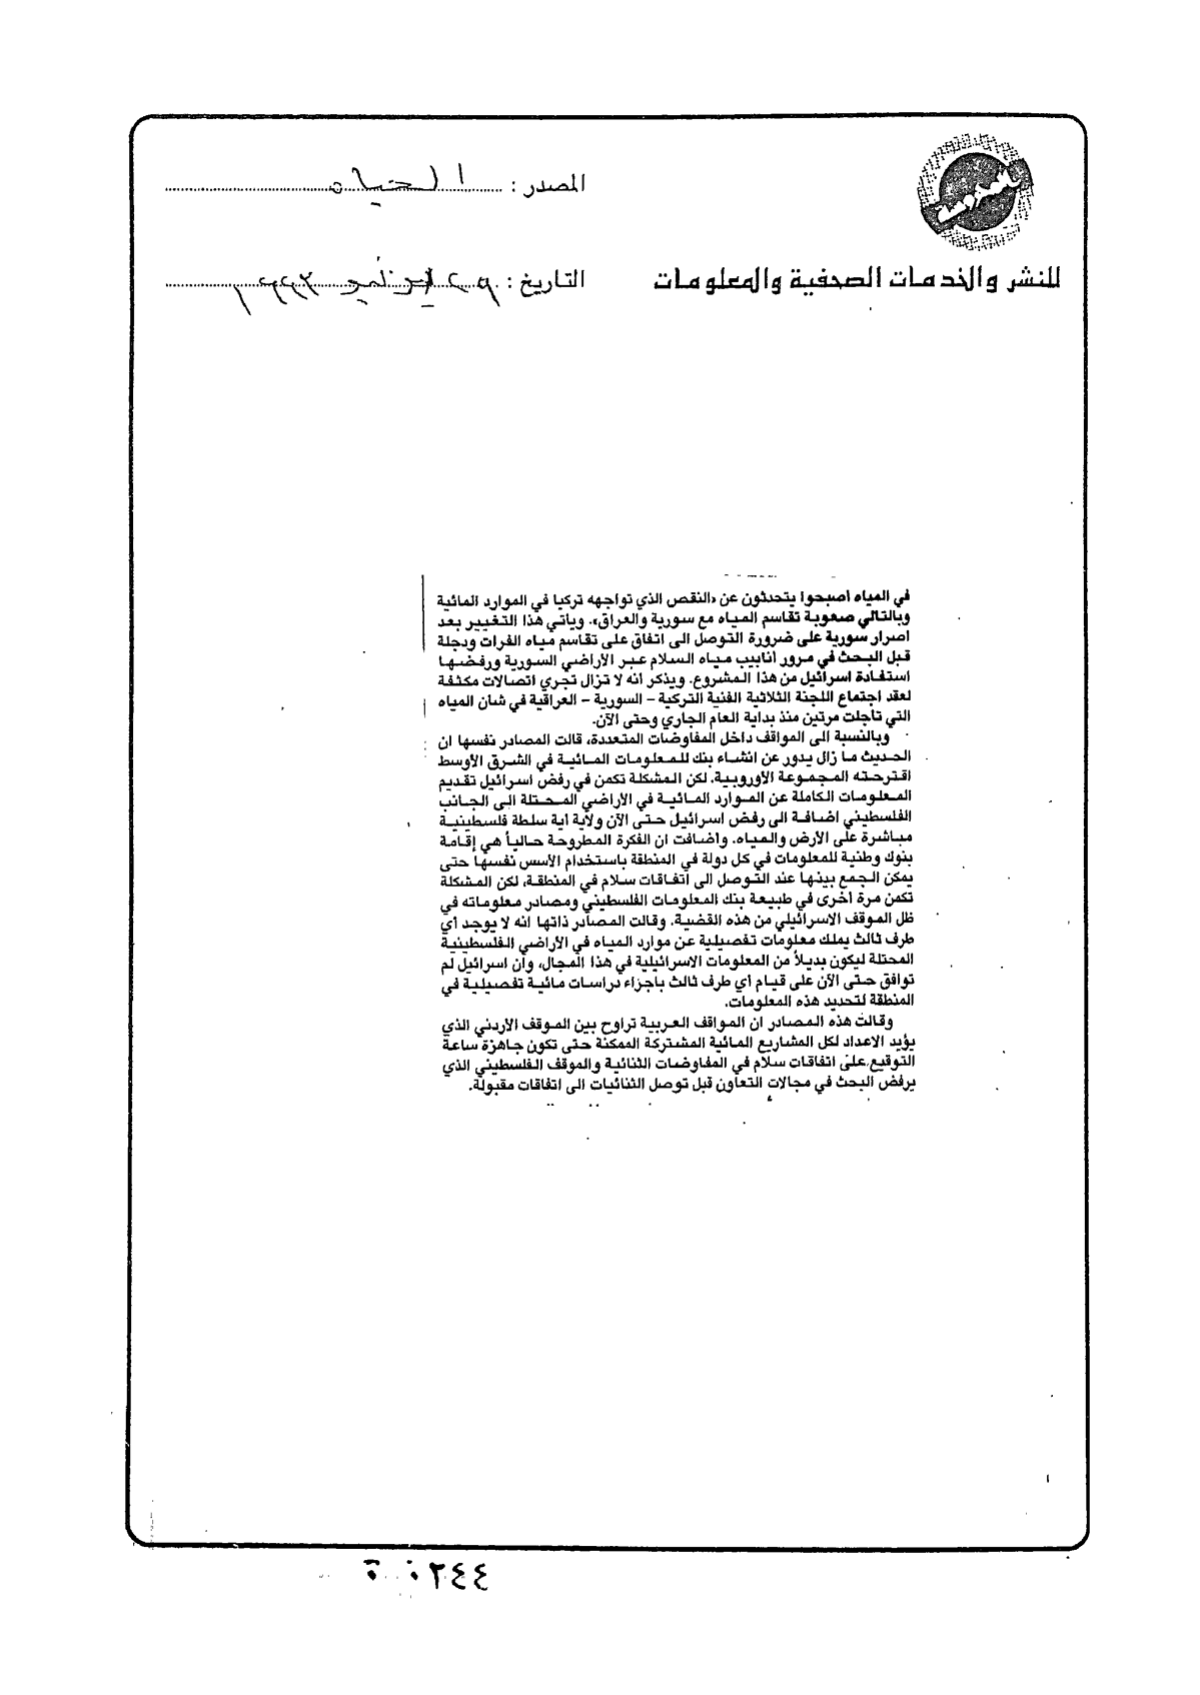 المصدر : الحياه
للنشر والخدمات الصحفية والمعلومات
التاريخ : ٢٩ يونيو ١٩٩٣
في المياه اصبحوا يتحدثون عن «النقص الذي تواجهه تركيا في الموارد المائية
وبالتالي صعوبة تقاسم المياه مع سورية والعراق». ويأتي هذا التغيير بعد
اصرار سورية على ضرورة التوصل الى اتفاق على تقاسم مياه الفرات ودجلة
قبل البحث في مرور أنابيب مياه السلام عبر الأراضي السورية ورفضها
استفادة اسرائيل من هذا المشروع. ويذكر انه لا تزال تجري اتصالات مكثفة
لعقد اجتماع اللجنة الثلاثية الفنية التركية - السورية - العراقية في شأن المياه
التي تأجلت مرتين منذ بداية العام الجاري وحتى الآن.
وبالنسبة الى المواقف داخل المفاوضات المتعددة، قالت المصادر نفسها ان
الحديث ما زال يدور عن انشاء بنك للمعلومات المائية في الشرق الأوسط
اقترحته المجموعة الأوروبية. لكن المشكلة تكمن في رفض اسرائيل تقديم
المعلومات الكاملة عن الموارد المائية في الأراضي المحتلة الى الجانب
الفلسطيني اضافة الى رفض اسرائيل حتى الآن ولاية اية سلطة فلسطينية
مباشرة على الأرض والمياه. واضافت ان الفكرة المطروحة حالياً هي إقامة
بنوك وطنية للمعلومات في كل دولة في المنطقة باستخدام الأسس نفسها حتى
يمكن الجمع بينها عند التوصل الى اتفاقات سلام في المنطقة، لكن المشكلة
تكمن مرة أخرى في طبيعة بنك المعلومات الفلسطيني ومصادر معلوماته في
ظل الموقف الاسرائيلي من هذه القضية. وقالت المصادر ذاتها انه لا يوجد أي
طرف ثالث يملك معلومات تفصيلية عن موارد المياه في الأراضي الفلسطينية
المحتلة ليكون بديلاً من المعلومات الاسرائيلية في هذا المجال، وأن اسرائيل لم
توافق حتى الآن على قيام أي طرف ثالث باجراء دراسات مائية تفصيلية في
المنطقة لتحديد هذه المعلومات.
وقالت هذه المصادر ان المواقف العربية تراوح بين الموقف الأردني الذي
يؤيد الاعداد لكل المشاريع المائية المشتركة الممكنة حتى تكون جاهزة ساعة
التوقيع على اتفاقات سلام في المفاوضات الثنائية والموقف الفلسطيني الذي
يرفض البحث في مجالات التعاون قبل توصل الثنائيات الى اتفاقات مقبولة.